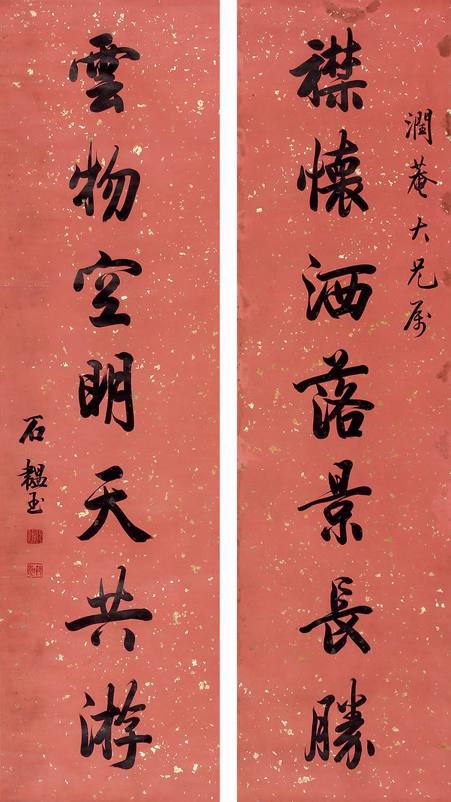 潤菴大兄属
襟懷洒落景長勝
雲物空明天共游
石韞玉